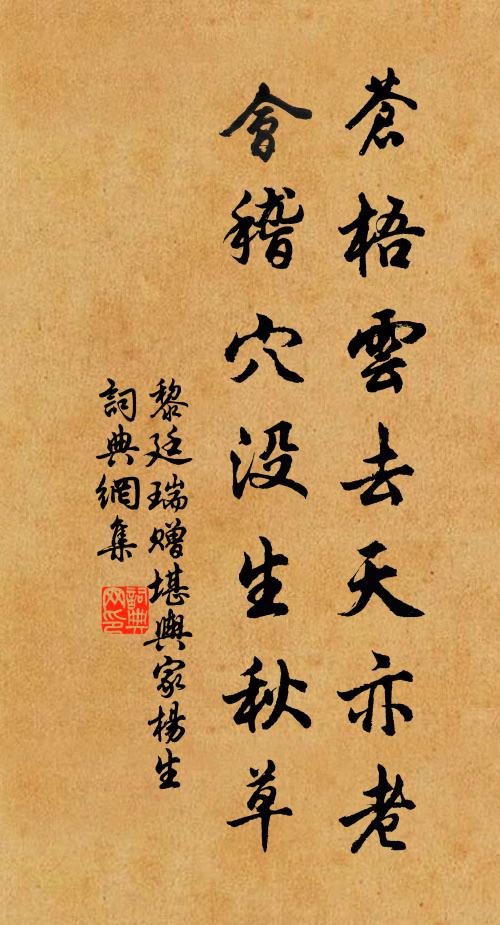 蒼梧雲去天亦老
會稽穴没生秋草
黎廷瑞贈堪輿家楊生
詞典網集
詞典网印